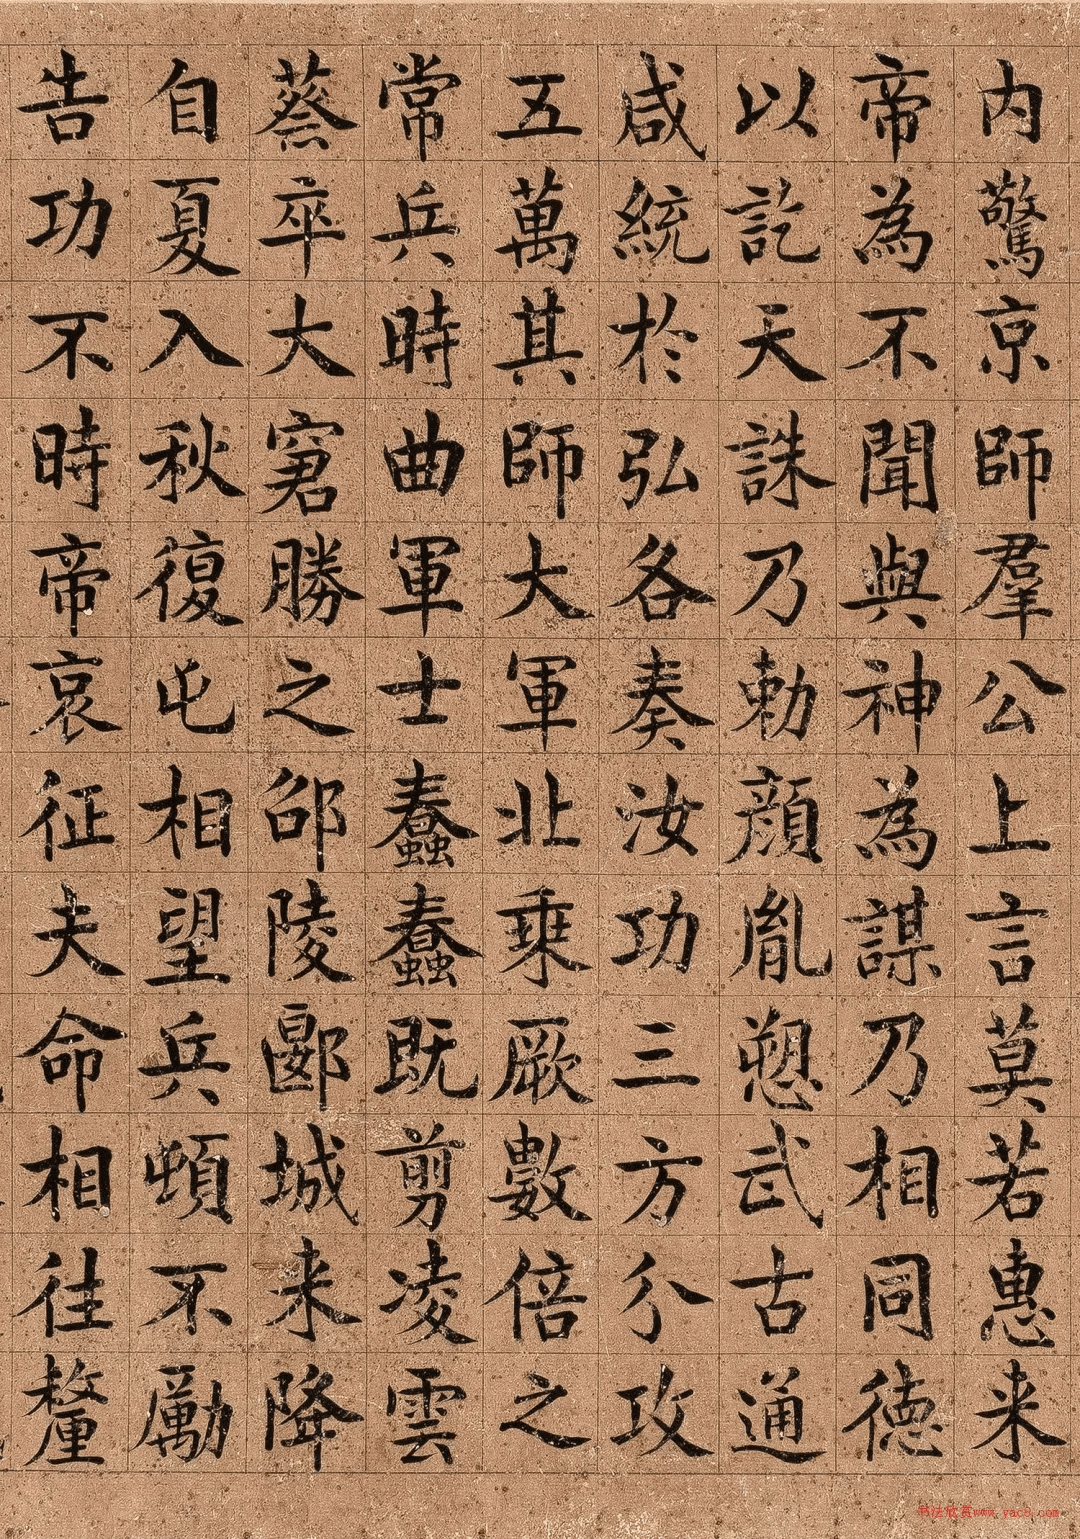 内驚京師羣公上言莫若惠来
帝為不聞與神為謀乃相同德
以訖天誅乃勅顔胤愬武古通
咸統於弘各奏汝功三方分攻
五萬其師大軍北乗厥數倍之
常兵時曲軍士蠢蠢既剪凌雲
蔡卒大窘勝之邵陵郾城来降
自夏入秋復屯相望兵頓不勵
告功不時帝哀征夫命相往釐
书法欣赏www.yac8.com